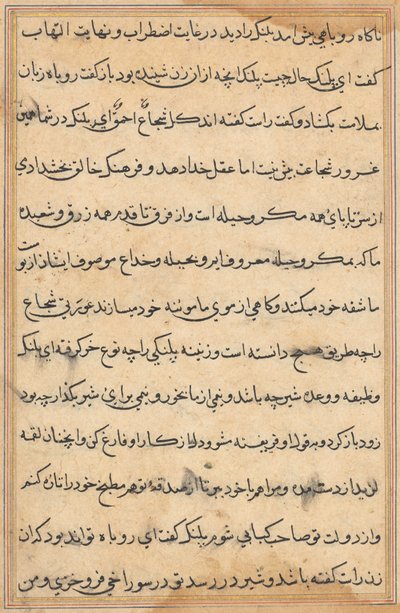 ناکاه روباهی پیش امد پلنک را دید در غایت اضطراب و نهایت التهاب
کفت ای پلنک حال چیست پلنک انچه از ان زن شنیده بود باز کفت روباه زبان
بملامت بکشاد و کفت راست کفته اند کل شجاع احمق ای پلنک در شما همین
غرور شجاعت بیش نیست اما عقل خدا دهد و فرهنک خالق بخشد ادمی
از سر تا پای همه مکر و حیله است و از فرق تا قدم همه زرق و شعبده
ما که بمکر و حیله معروفایم و بحیله و خداع موصوف ایشان از پوست
ما شقه خود میکنند و کاهی از موی ما موئنه خود میسازند عورتی شجاع
را چه طریق هیچ دانسته است و زنینه پلنکی را چه نوع خر کرفته ای پلنک
وظیفه و وعده شیر چه باشد و نیمی از ما بخور و نیمی برای شیر بکذار چه بود
زود باز کرد و بقول او فریفته شو و دل از کار او فارغ کن و انچنان لقمه
لذید از دست مده و مرا همراه خود ببر تا از صدقه تو هم مطبخ خود را تازه کنم
و از دولت تو صاحب کبابی شوم پلنک کفت ای روباه تواند بود که ان
زن راست کفته باشد و شیر در رسد تو در سوراخی فرو خزی و من